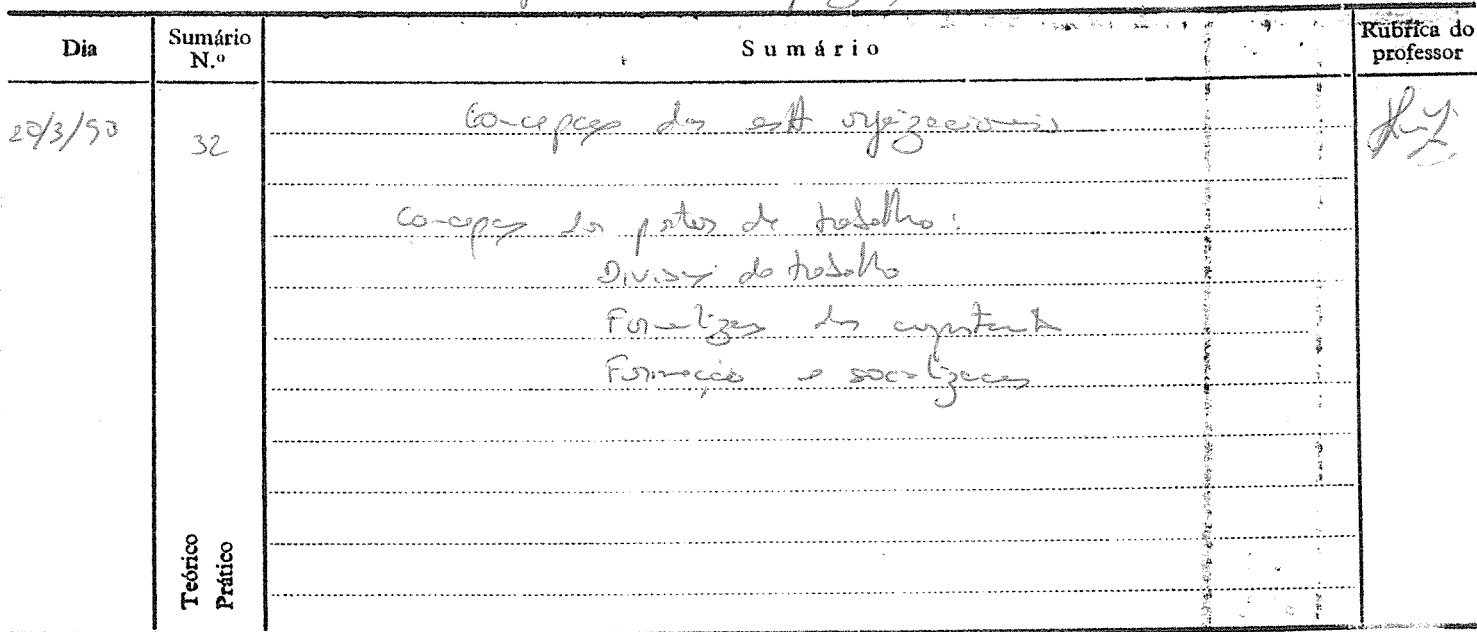 Dia
Sumário N.º
Sumário
Rubrica do professor
20/3/90
32
Concepção das estt organizacionais
Concepção dos postos de trabalho:
Divisão do trabalho
Formalização do comportamento
Formação e socialização
Teórico
Prático